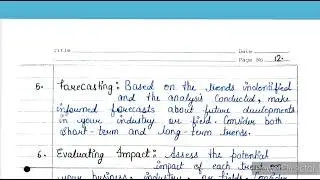 Title
Date
Page No 12.
5. Forecasting: Based on the trends indentified
and the analysis conducted, make
informed forecasts about future developments
in your industry or field. Consider both
short-term and long-term trends.
6. Evaluating Impact: Assess the potential
impact of each trend on
your business, industry, or field. Consider